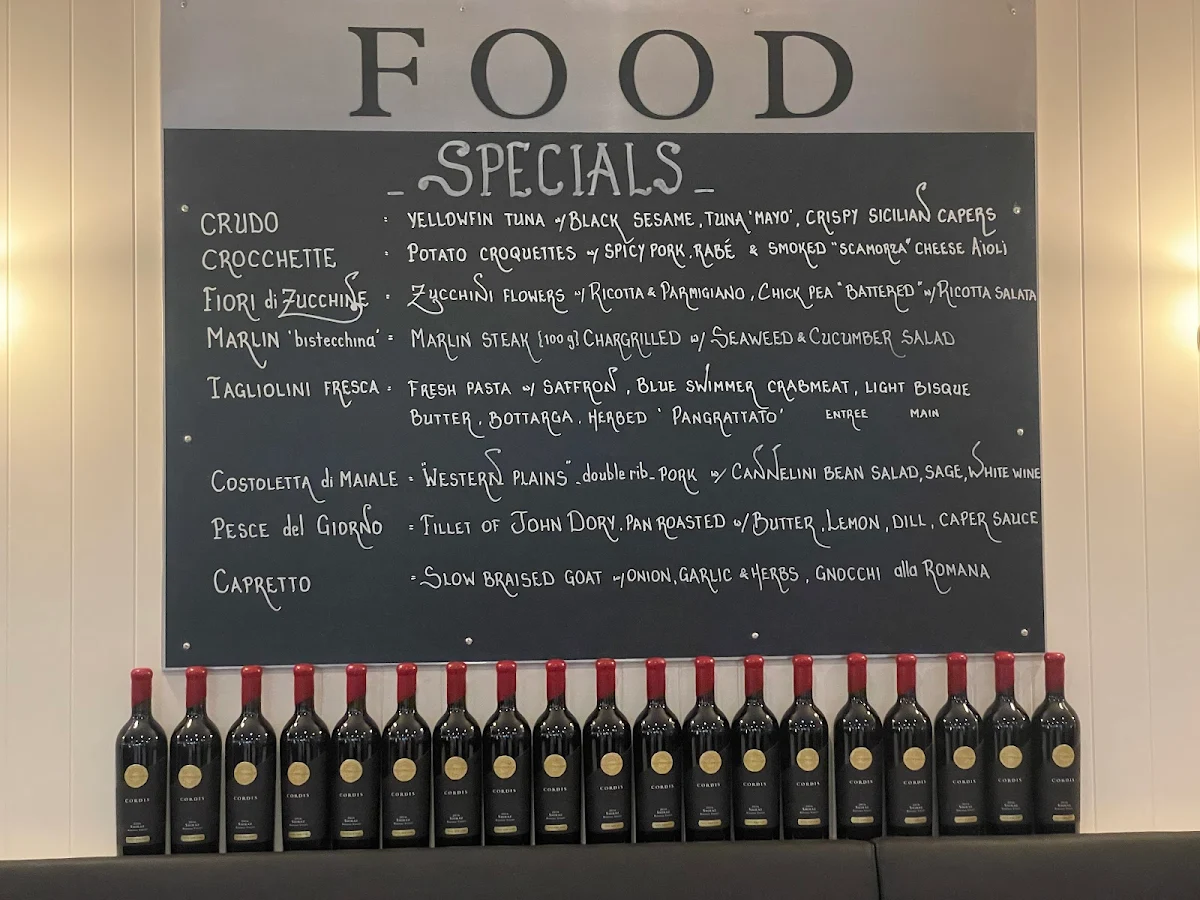 FOOD
- SPECIALS -
CRUDO : YELLOWFIN TUNA w/ BLACK SESAME, TUNA 'MAYO', CRISPY SICILIAN CAPERS
CROCCHETTE : POTATO CROQUETTES w/ SPICY PORK, RABÉ & SMOKED "SCAMORZA" CHEESE AIOLI
FIORI di ZUCCHINE = ZUCCHINI FLOWERS w/ RICOTTA & PARMIGIANO, CHICK PEA "BATTERED" w/ RICOTTA SALATA
MARLIN 'bistecchina' = MARLIN STEAK [100g] CHARGRILLED w/ SEAWEED & CUCUMBER SALAD
TAGLIOLINI FRESCA = FRESH PASTA w/ SAFFRON, BLUE SWIMMER CRABMEAT, LIGHT BISQUE
BUTTER, BOTTARGA, HERBED 'PANGRATTATO' ENTREE MAIN
COSTOLETTA di MAIALE = "WESTERN PLAINS" - double rib - PORK w/ CANNELINI BEAN SALAD, SAGE, WHITE WINE
PESCE del GIORNO = FILLET OF JOHN DORY, PAN ROASTED w/ BUTTER, LEMON, DILL, CAPER SAUCE
CAPRETTO = SLOW BRAISED GOAT w/ ONION, GARLIC & HERBS, GNOCCHI alla ROMANA
CORDIS CORDIS CORDIS CORDIS CORDIS CORDIS CORDIS CORDIS CORDIS CORDIS CORDIS CORDIS CORDIS CORDIS CORDIS CORDIS CORDIS CORDIS CORDIS